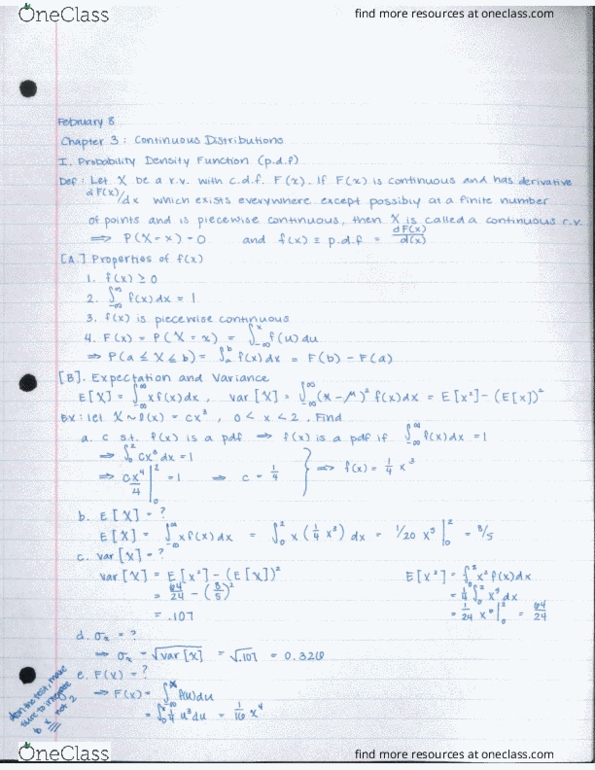 OneClass
find more resources at oneclass.com
February 8
Chapter 3: Continuous Distributions
I. Probability Density Function (p.d.f)
Def: Let X be a r.v. with c.d.f. F(x). If F(x) is continuous and has derivative
dF(x)/dx which exists everywhere except possibly at a finite number
of points and is piecewise continuous, then X is called a continuous r.v.
⟹ P(X=x)=0 and f(x) ≡ p.d.f = dF(x)/d(x)
[A.] Properties of f(x)
1. f(x) ≥ 0
2. ∫_{-∞}^{∞} f(x)dx = 1
3. f(x) is piecewise continuous
4. F(x) = P(X = x) = ∫_{-∞}^{x} f(u)du
⟹ P(a ≤ X ≤ b) = ∫_a^b f(x)dx = F(b) - F(a)
[B]. Expectation and Variance
E[X] = ∫_{-∞}^{∞} xf(x)dx, var[X] = ∫_{-∞}^{∞} (x-μ)² f(x)dx = E[x²] - (E[x])²
Ex: let X~f(x) = cx³, 0 < x < 2. Find
a. c s.t. f(x) is a pdf ⟹ f(x) is a pdf if ∫_{-∞}^{∞} f(x)dx = 1
⟹ ∫_0^2 cx³dx = 1
⟹ cx⁴/4 |_0^2 = 1 ⟹ c = 1/4 } ⟹ f(x) = 1/4 x³
b. E[X] = ?
E[X] = ∫_{-∞}^{∞} xf(x)dx = ∫_0^2 x(1/4 x³)dx = 1/20 x⁵ |_0^2 = 8/5
c. var[X] = ?
var[X] = E[x²] - (E[x])² E[x²] = ∫_0^2 x² f(x)dx
= 64/24 - (8/5)² = 1/4 ∫_0^2 x⁵dx
= .107 = 1/24 x⁶ |_0^2 = 64/24
d. σx = ?
⟹ σx = √var[X] = √.107 = 0.326
e. F(x) = ?
⟹ F(x) = ∫_{-∞}^{x} f(u)du
= ∫_0^x 1/4 u³du = 1/16 x⁴
on the test, make
sure to integrate
to x not 2
OneClass
find more resources at oneclass.com